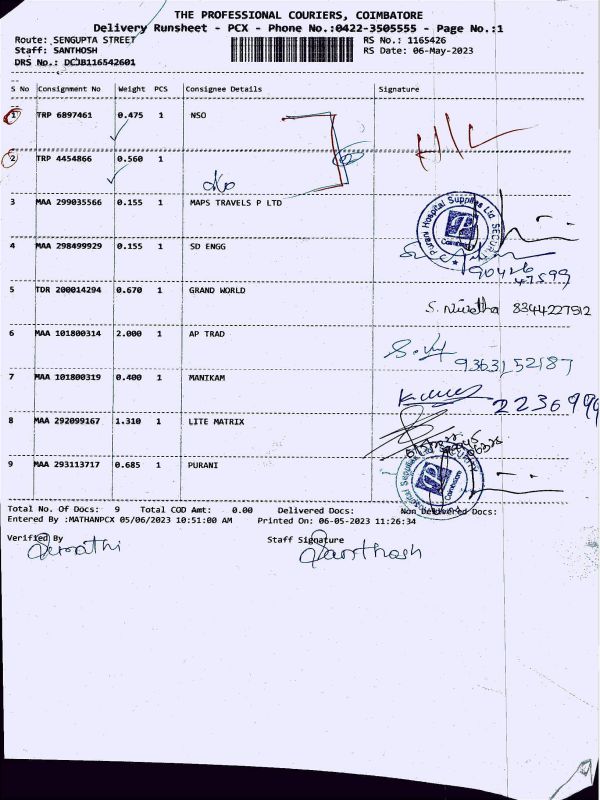 THE PROFESSIONAL COURIERS, COIMBATORE
Delivery Runsheet - PCX - Phone No.:0422-3505555 - Page No.:1
Route: SENGUPTA STREET RS No.: 1165426
Staff: SANTHOSH RS Date: 06-May-2023
DRS No.: DCJB116542601
S No Consignment No Weight PCS Consignee Details Signature
1 TRP 6897461 0.475 1 NSO
2 TRP 4454866 0.560 1
3 MAA 299035566 0.155 1 MAPS TRAVELS P LTD
Purani Hospital Supplies Ltd SECURITY
Coimbatore
4 MAA 298499929 0.155 1 SD ENGG
90426
47599
5 TDR 200014294 0.670 1 GRAND WORLD
S. Nivetha 8344227912
6 MAA 101800314 2.000 1 AP TRAD
9363152187
7 MAA 101800319 0.400 1 MANIKAM
2236999
8 MAA 292099167 1.310 1 LITE MATRIX
9 MAA 293113717 0.685 1 PURANI
Total No. Of Docs: 9 Total COD Amt: 0.00 Delivered Docs: Non Delivered Docs:
Entered By :MATHANPCX 05/06/2023 10:51:00 AM Printed On: 06-05-2023 11:26:34
Verified By Staff Signature
Santhosh